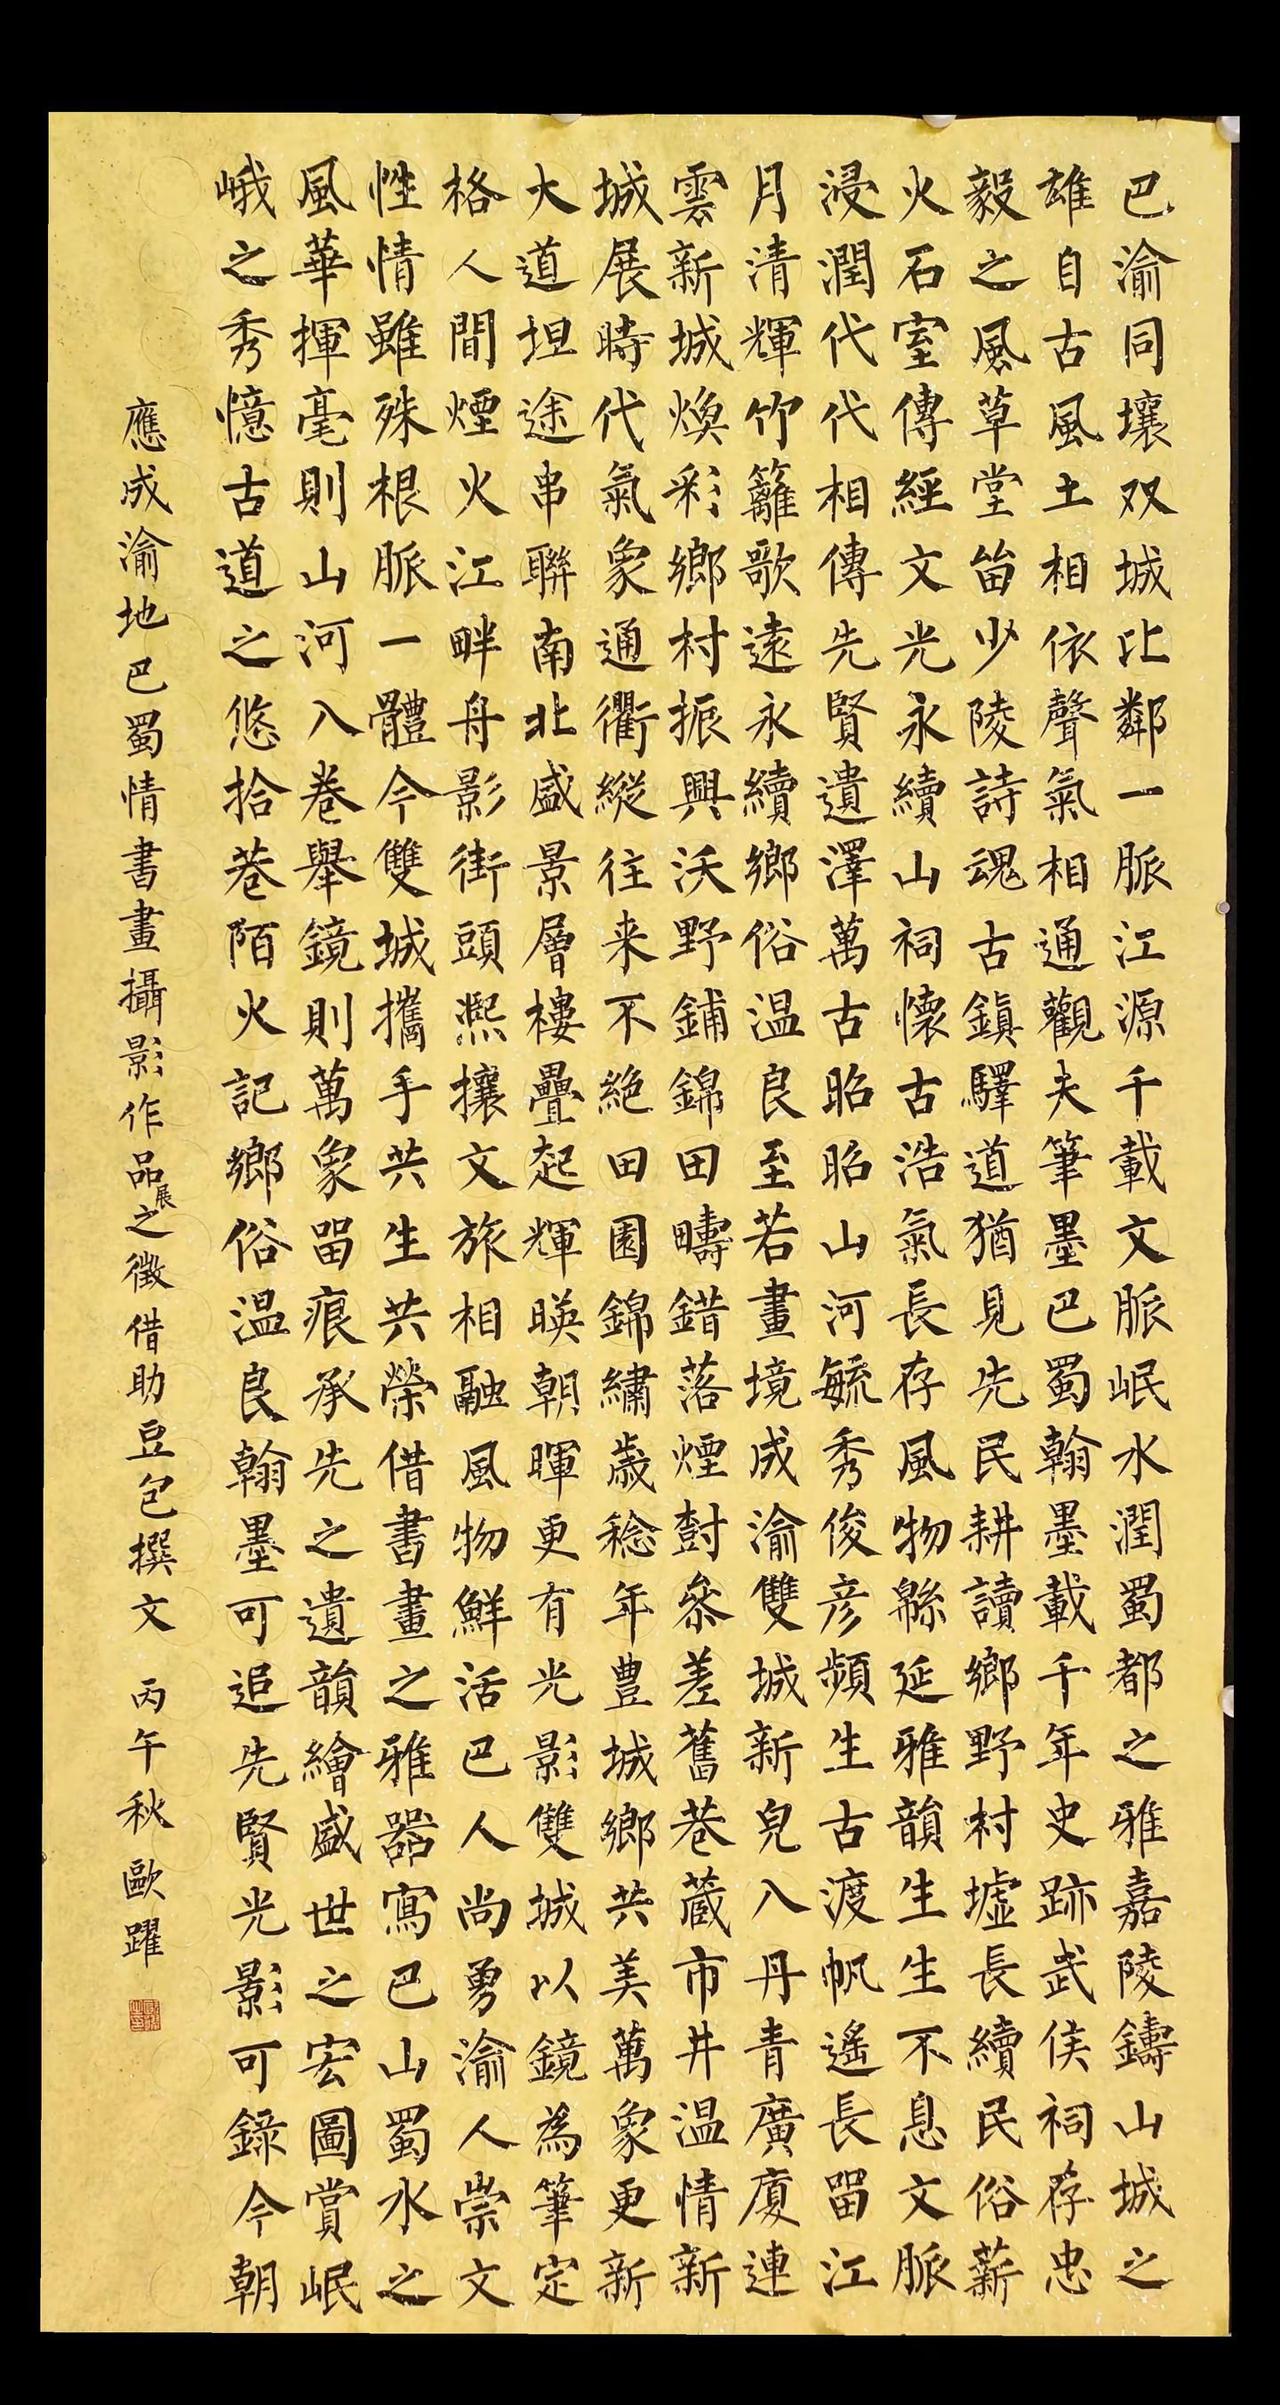 巴渝同壤双城比鄰一脈江源千載文脈岷水潤蜀都之雅嘉陵鑄山城之
雄自古風土相依聲氣相通觀夫筆墨巴蜀翰墨載千年史跡武侯祠存忠
毅之風草堂留少陵詩魂古鎮驛道猶見先民耕讀鄉野村墟長續民俗薪
火石室傳經文光永續山祠懷古浩氣長存風物緜延雅韻生生不息文脈
浸潤代代相傳先賢遺澤萬古昭昭山河毓秀俊彦頻生古渡帆遙長留江
月清輝竹籬歌遠永續鄉俗温良至若畫境成渝雙城新皃入丹青廣廈連
雲新城煥彩鄉村振興沃野鋪錦田疇錯落煙樹參差舊巷蔵市井温情新
城展時代氣象通衢縱往来不絶田園錦繡歳稔年豊城鄉共美萬象更新
大道坦途串聯南北盛景層樓疊起輝暎朝暉更有光影雙城以鏡為筆定
格人間煙火江畔舟影街頭熙攘文旅相融風物鮮活巴人尚勇渝人崇文
性情雖殊根脈一體今雙城攜手共生共榮借書畫之雅器寫巴山蜀水之
風華揮毫則山河入卷舉鏡則萬象留痕承先之遺韻繪盛世之宏圖賞岷
峨之秀憶古道之悠拾巷陌火記鄉俗温良翰墨可追先賢光影可錄今朝
應成渝地巴蜀情書畫攝影作品展之徵借助豆包撰文 丙午秋歐躍